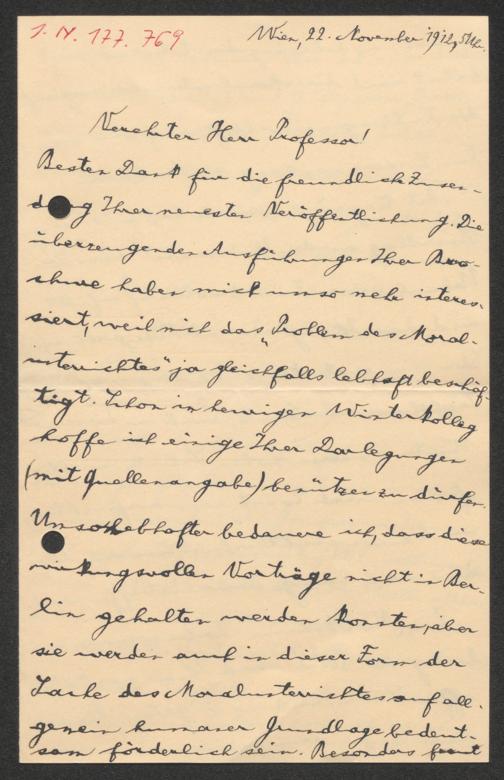 I. N. 177.769
Wien, 22. November 1912, 5 Uhr.
Verehrter Herr Professor!
Besten Dank für die freundliche Zusen-
dung Ihrer neuesten Veröffentlichung. Die
überzeugenden Ausführungen Ihrer Bro-
schure haben mich umso mehr interes-
siert, weil mich das „Problem des Moral-
unterrichtes" ja gleichfalls lebhaft beschäf-
tigt. Schon in heurigen Winterkolleg
hoffe ich einige Ihrer Darlegungen
(mit Quellenangabe) benützen zu dürfen.
Umso lebhafter bedauere ich, dass diese
wirkungsvollen Vorträge nicht in Ber-
lin gehalten werden konnten, aber
sie werden auch in dieser Form der
Sache des Moralunterrichtes auf all-
gemein humaner Grundlage bedeut-
sam förderlich sein. Besonders freut